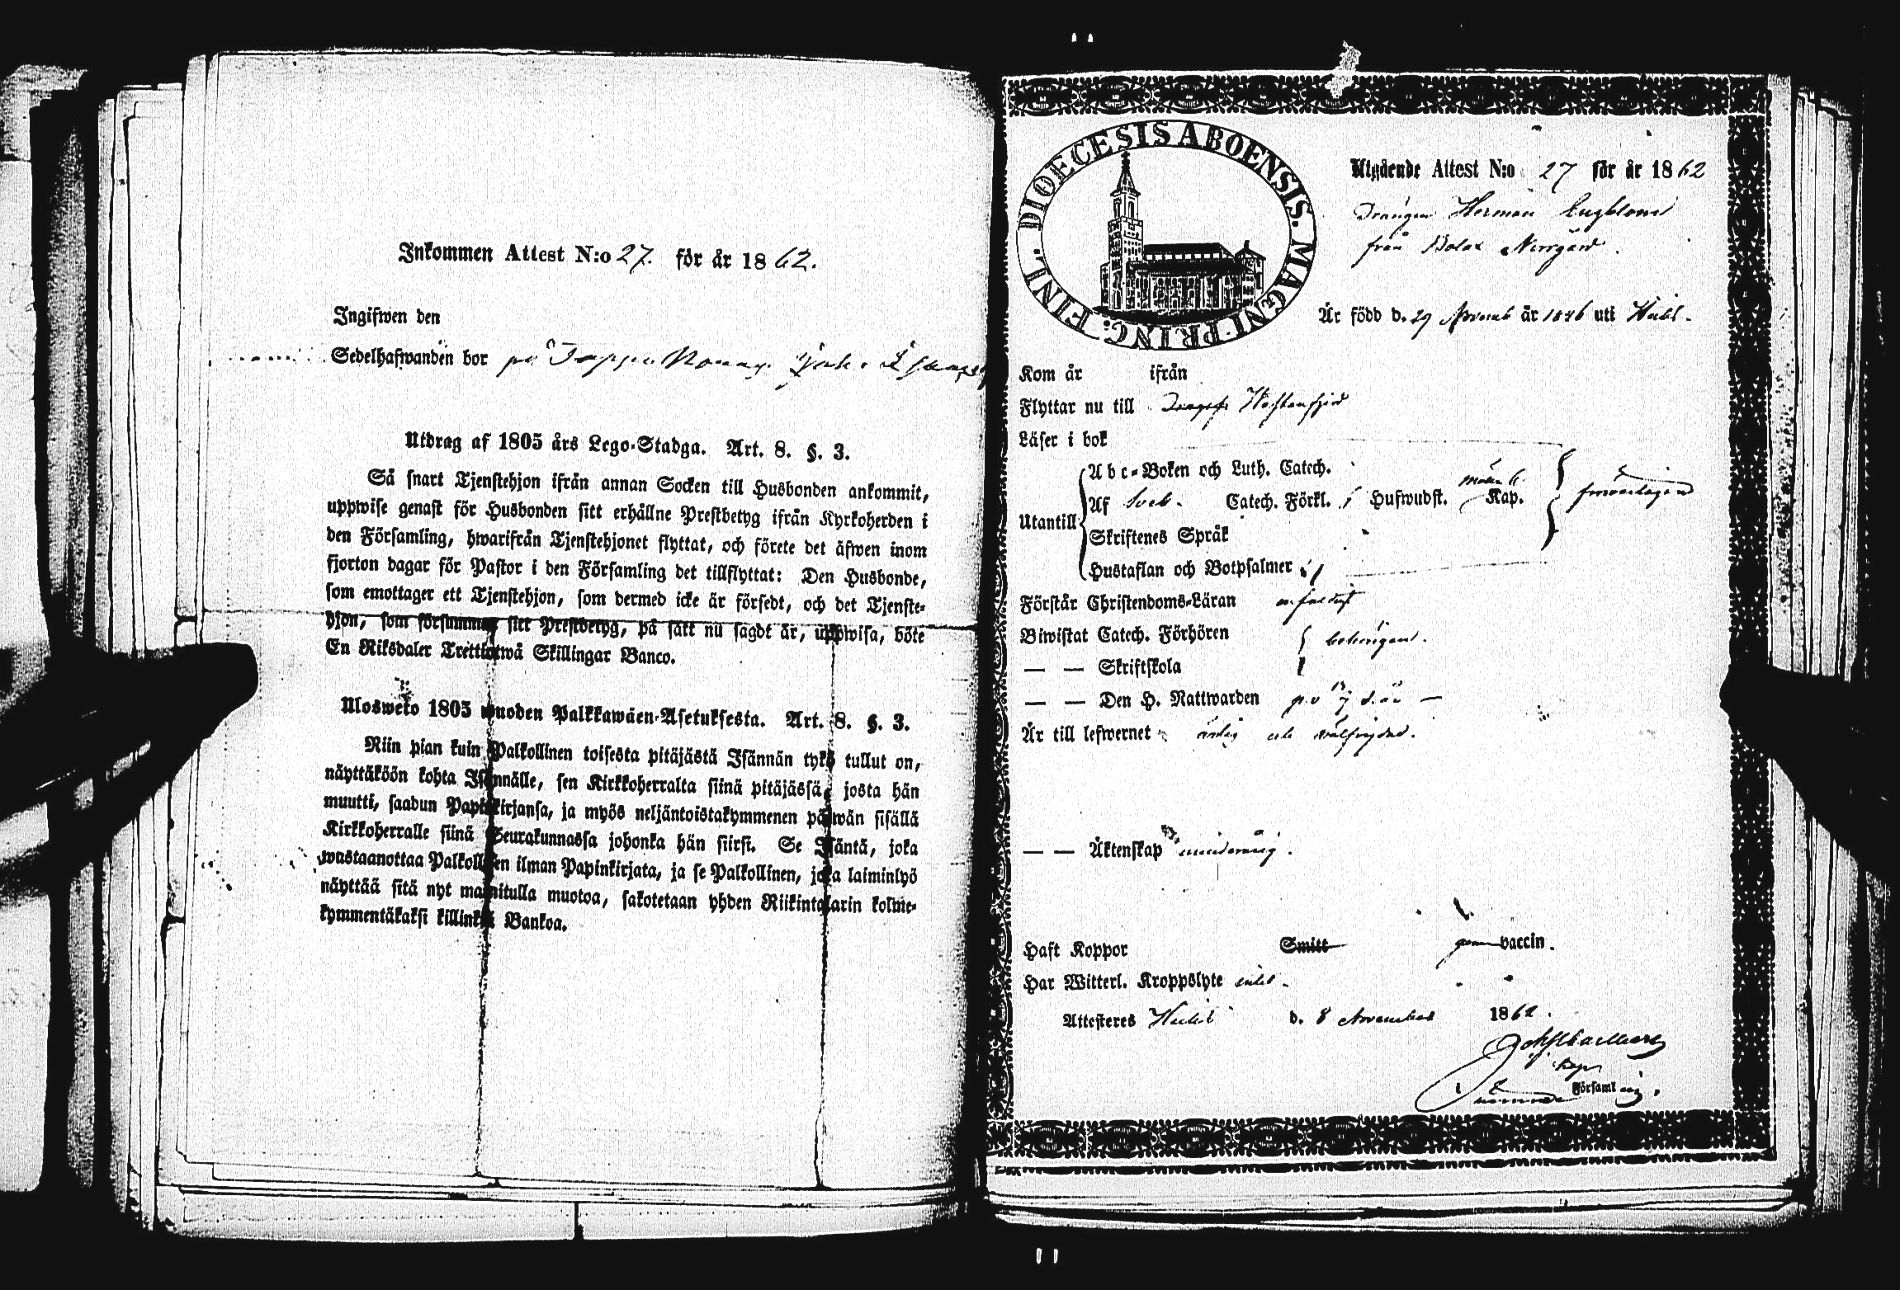 Inkommen Attest N:o 27. för år 1862.
Ingifwen den
Sedelhafwanden bor på
Utdrag af 1805 års Lego-Stadga. Art. 8. §. 3.
Så snart Tjenstehjon ifrån annan Socken till Husbonden ankommit,
uppwise genast för Husbonden sitt erhållne Prestbetyg ifrån Kyrkoherden i
den Församling, hwarifrån Tjenstehjonet flyttat, och förete det äfwen inom
fjorton dagar för Pastor i den Församling det tillflyttat: Den Husbonde,
som emottager ett Tjenstehjon, som dermed icke är försedt, och det Tjenste-
hjon, som försummar sitt Prestbetyg, på sätt nu sagdt är, uppwisa, böte
En Riksdaler Trettiotwå Skillingar Banco.
Ulosweto 1805 wuoden Palkkawäen-Asetuksesta. Art. 8. §. 3.
Niin pian kuin Palkollinen toisesta pitäjästä Isännän tykö tullut on,
näyttäköön kohta Isännälle, sen Kirkkoherralta siinä pitäjässä, josta hän
muutti, saadun Papinkirjansa, ja myös neljäntoistakymmenen päiwän sisällä
Kirkkoherralle siinä Seurakunnassa johonka hän siirsi. Se Isäntä, joka
wastaanottaa Palkollisen ilman Papinkirjata, ja se Palkollinen, joka laiminlyö
näyttää sitä nyt mainitulla muotoa, sakotetaan yhden Riikintalarin kolme-
kymmentäkaksi killinkiä Bankoa.
DIOECESIS ABOENSIS. MAGNI PRINC: FINL.
Utgående Attest N:o 27 för år 1862
Drängen Herman Engblom
från Bolax Norrgård.
Är född d. 29 Novemb år 1846 uti Hitis.
Kom år ifrån
Flyttar nu till
Läser i bok
Abc-Boken och Luth. Catech.
Utantill Af Catech. Förkl. Hufwudst. Kap.
Skriftenes Språk
Hustaflan och Botpsalmer
Förstår Christendoms-Läran enfaldigt
Biwistat Catech. Förhören behörigen.
— — Skriftskola
— — Den H. Nattwarden
Är till lefwernet ärlig och wälfrejdad.
— — Äktenskap minderårig.
Haft Koppor Smitt genom vaccin.
Har Witterl. Kroppslyte intet.
Attesteres Hitis d. 8 November 1862.
Församling.